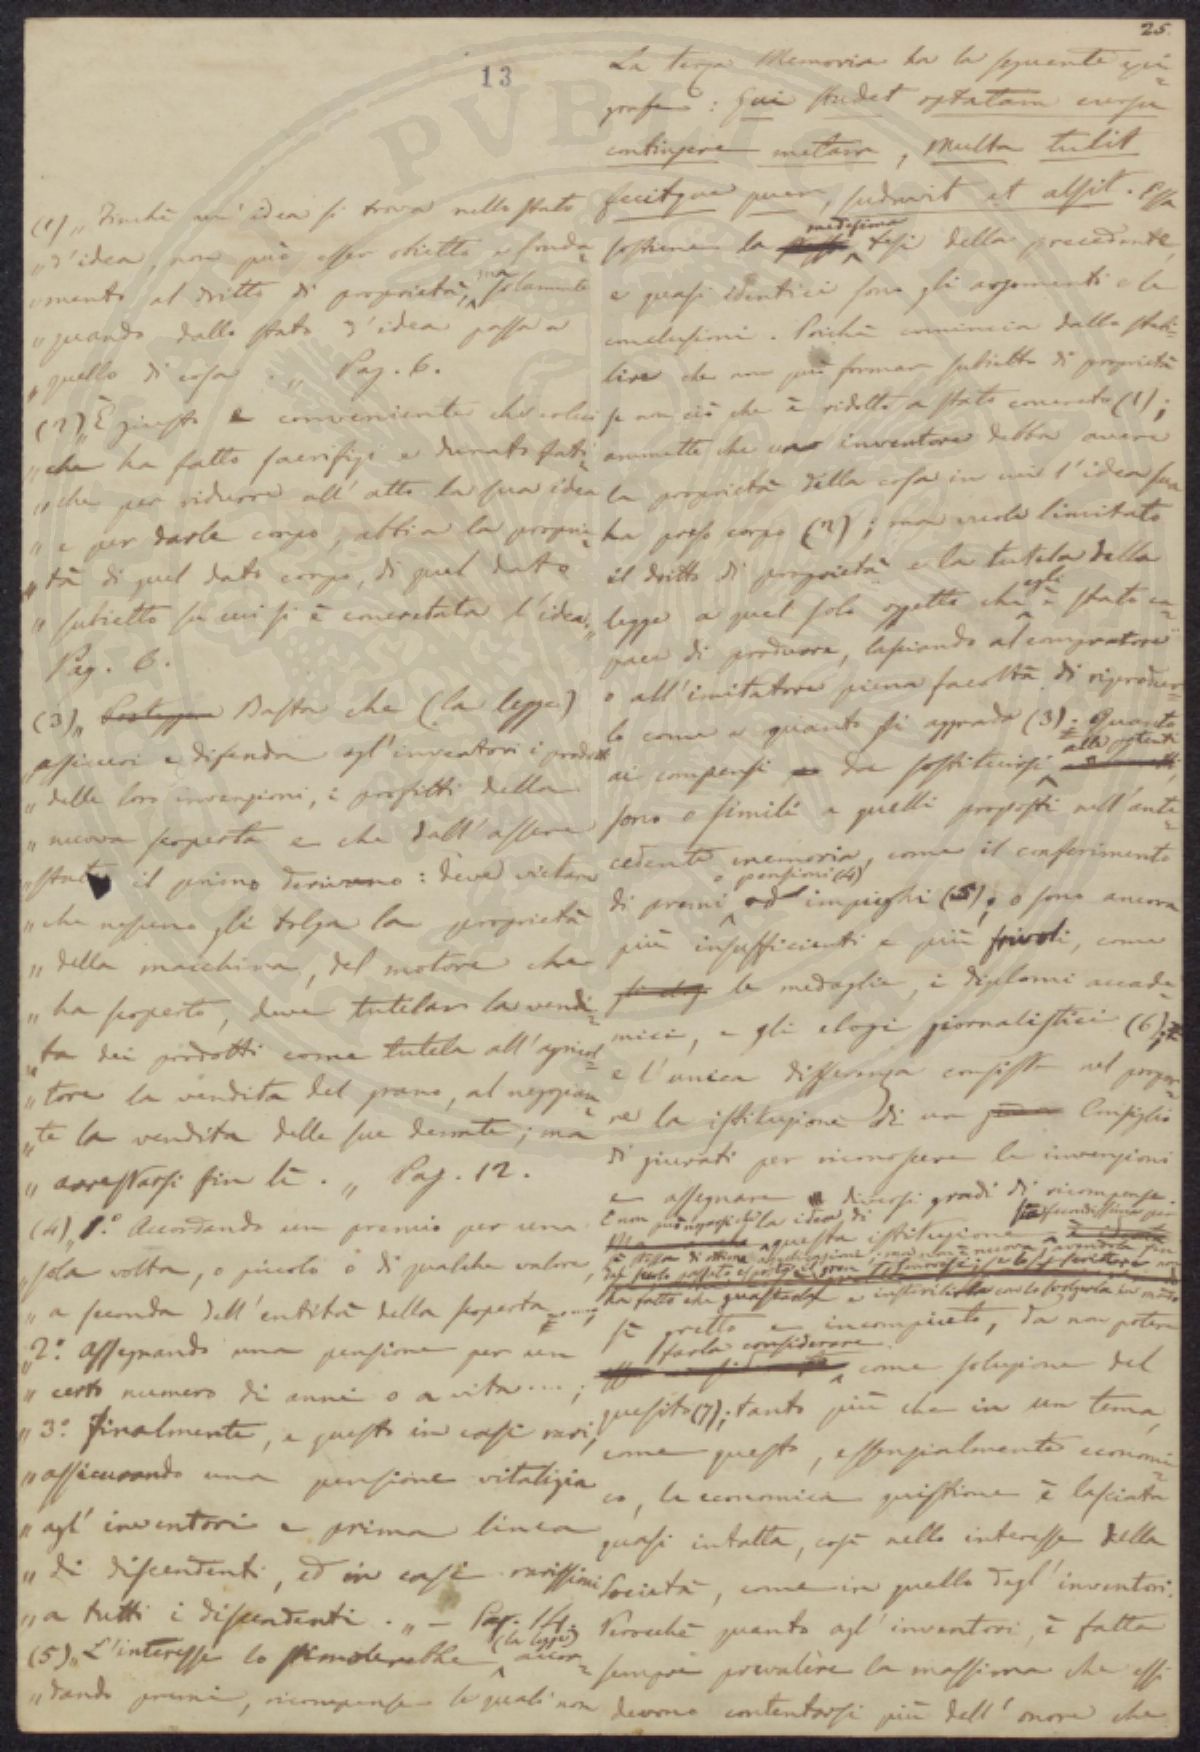 25
13
La terza Memoria ha la seguente epi=
grafe: Qui studet optatam cursu
contingere metam, Multa tulit
fecitque puer, sudavit et alsit. Essa
sostiene la medesima tesi della precedente,
e quasi identici sono gli argomenti e le
conclusioni. Poichè comincia dallo stabi=
lire che non può formar subietto di proprietà
se non ciò che è ridotto a stato concreto (1);
ammette che uno inventore debba avere
la proprietà della cosa in cui l'idea sua
ha preso corpo (2); ma vuole limitato
il dritto di proprietà e la tutela della
legge a quel solo oggetto che egli è stato ca=
pace di produrre, lasciando al compratore
o all'imitatore piena facoltà di riprodur=
lo come e quanto gli aggrada (3). Quanto
ai compensi da sostituirsi alle patenti,
sono o simili a quelli proposti nell'ante=
cedente memoria, come il conferimento
di premi o pensioni (4) ed impieghi (5); o sono ancora
più insufficienti e più frivoli, come
le medaglie, i diplomi accade=
mici, e gli elogi giornalistici (6);
e l'unica differenza consiste nel propor=
re la istituzione di un Consiglio
di giurati per riconoscere le invenzioni
e assegnare i diversi gradi di ricompense.
E non può negarsi che la idea di questa istituzione sia fecondissima
ha fatto che guastarla e insterilirla con lo svolgerla in modo
sì gretto e incompiuto, da non potere
farla considerare come soluzione del
quesito (7); tanto più che in un tema,
come questo, essenzialmente economi=
co, la economica quistione è lasciata
quasi intatta, così nello interesse della
Società, come in quello degl'inventori.
Perocchè quanto agl'inventori, è fatta
sempre prevalere la massima che essi
devono contentarsi più dell'onore che
(1) „ Finchè un'idea si trova nello stato
„ d'idea, non può esser obietto e fonda=
„ mento al dritto di proprietà, ma solamente
„ quando dallo stato d'idea passa a
„ quello di cosa. „ Pag. 6.
(2) „ È giusto e conveniente che colui
„ che ha fatto sacrifizi e durato fati=
„ che per ridurre all'atto la sua idea
„ e per darle corpo, abbia la proprie=
„ tà di quel dato corpo, di quel dato
„ subietto su cui si è concretata l'idea. „
Pag. 6.
(3) „ Basta che (la legge)
„ assicuri e difenda agl'inventori i prodotti
„ delle loro invenzioni, i profitti della
„ nuova scoperta e che dall'essere
„ stato il primo derivano: deve vietare
„ che nessuno gli tolga la proprietà
„ della macchina, del motore che
„ ha scoperto, deve tutelare la vendi=
„ ta dei prodotti come tutela all'agricol=
„ tore la vendita del grano, al negozian=
„ te la vendita delle sue derrate; ma
„ arrestarsi fin lì. „ Pag. 12.
(4) „ 1.° Accordando un premio per una
„ sola volta, o piccolo o di qualche valore,
„ a seconda dell'entità della scoperta ....;
„ 2.° Assegnando una pensione per un
„ certo numero di anni o a vita ....;
„ 3.° finalmente, e questo in casi rari,
„ assicurando una pensione vitalizia
„ agl'inventori e prima linea
„ di discendenti, ed in casi rarissimi
„ a tutti i discendenti. „ — Pag. 14.
(5) „ L'interesse lo stimolerebbe (la legge) accor=
„ dando premi, ricompense le quali non